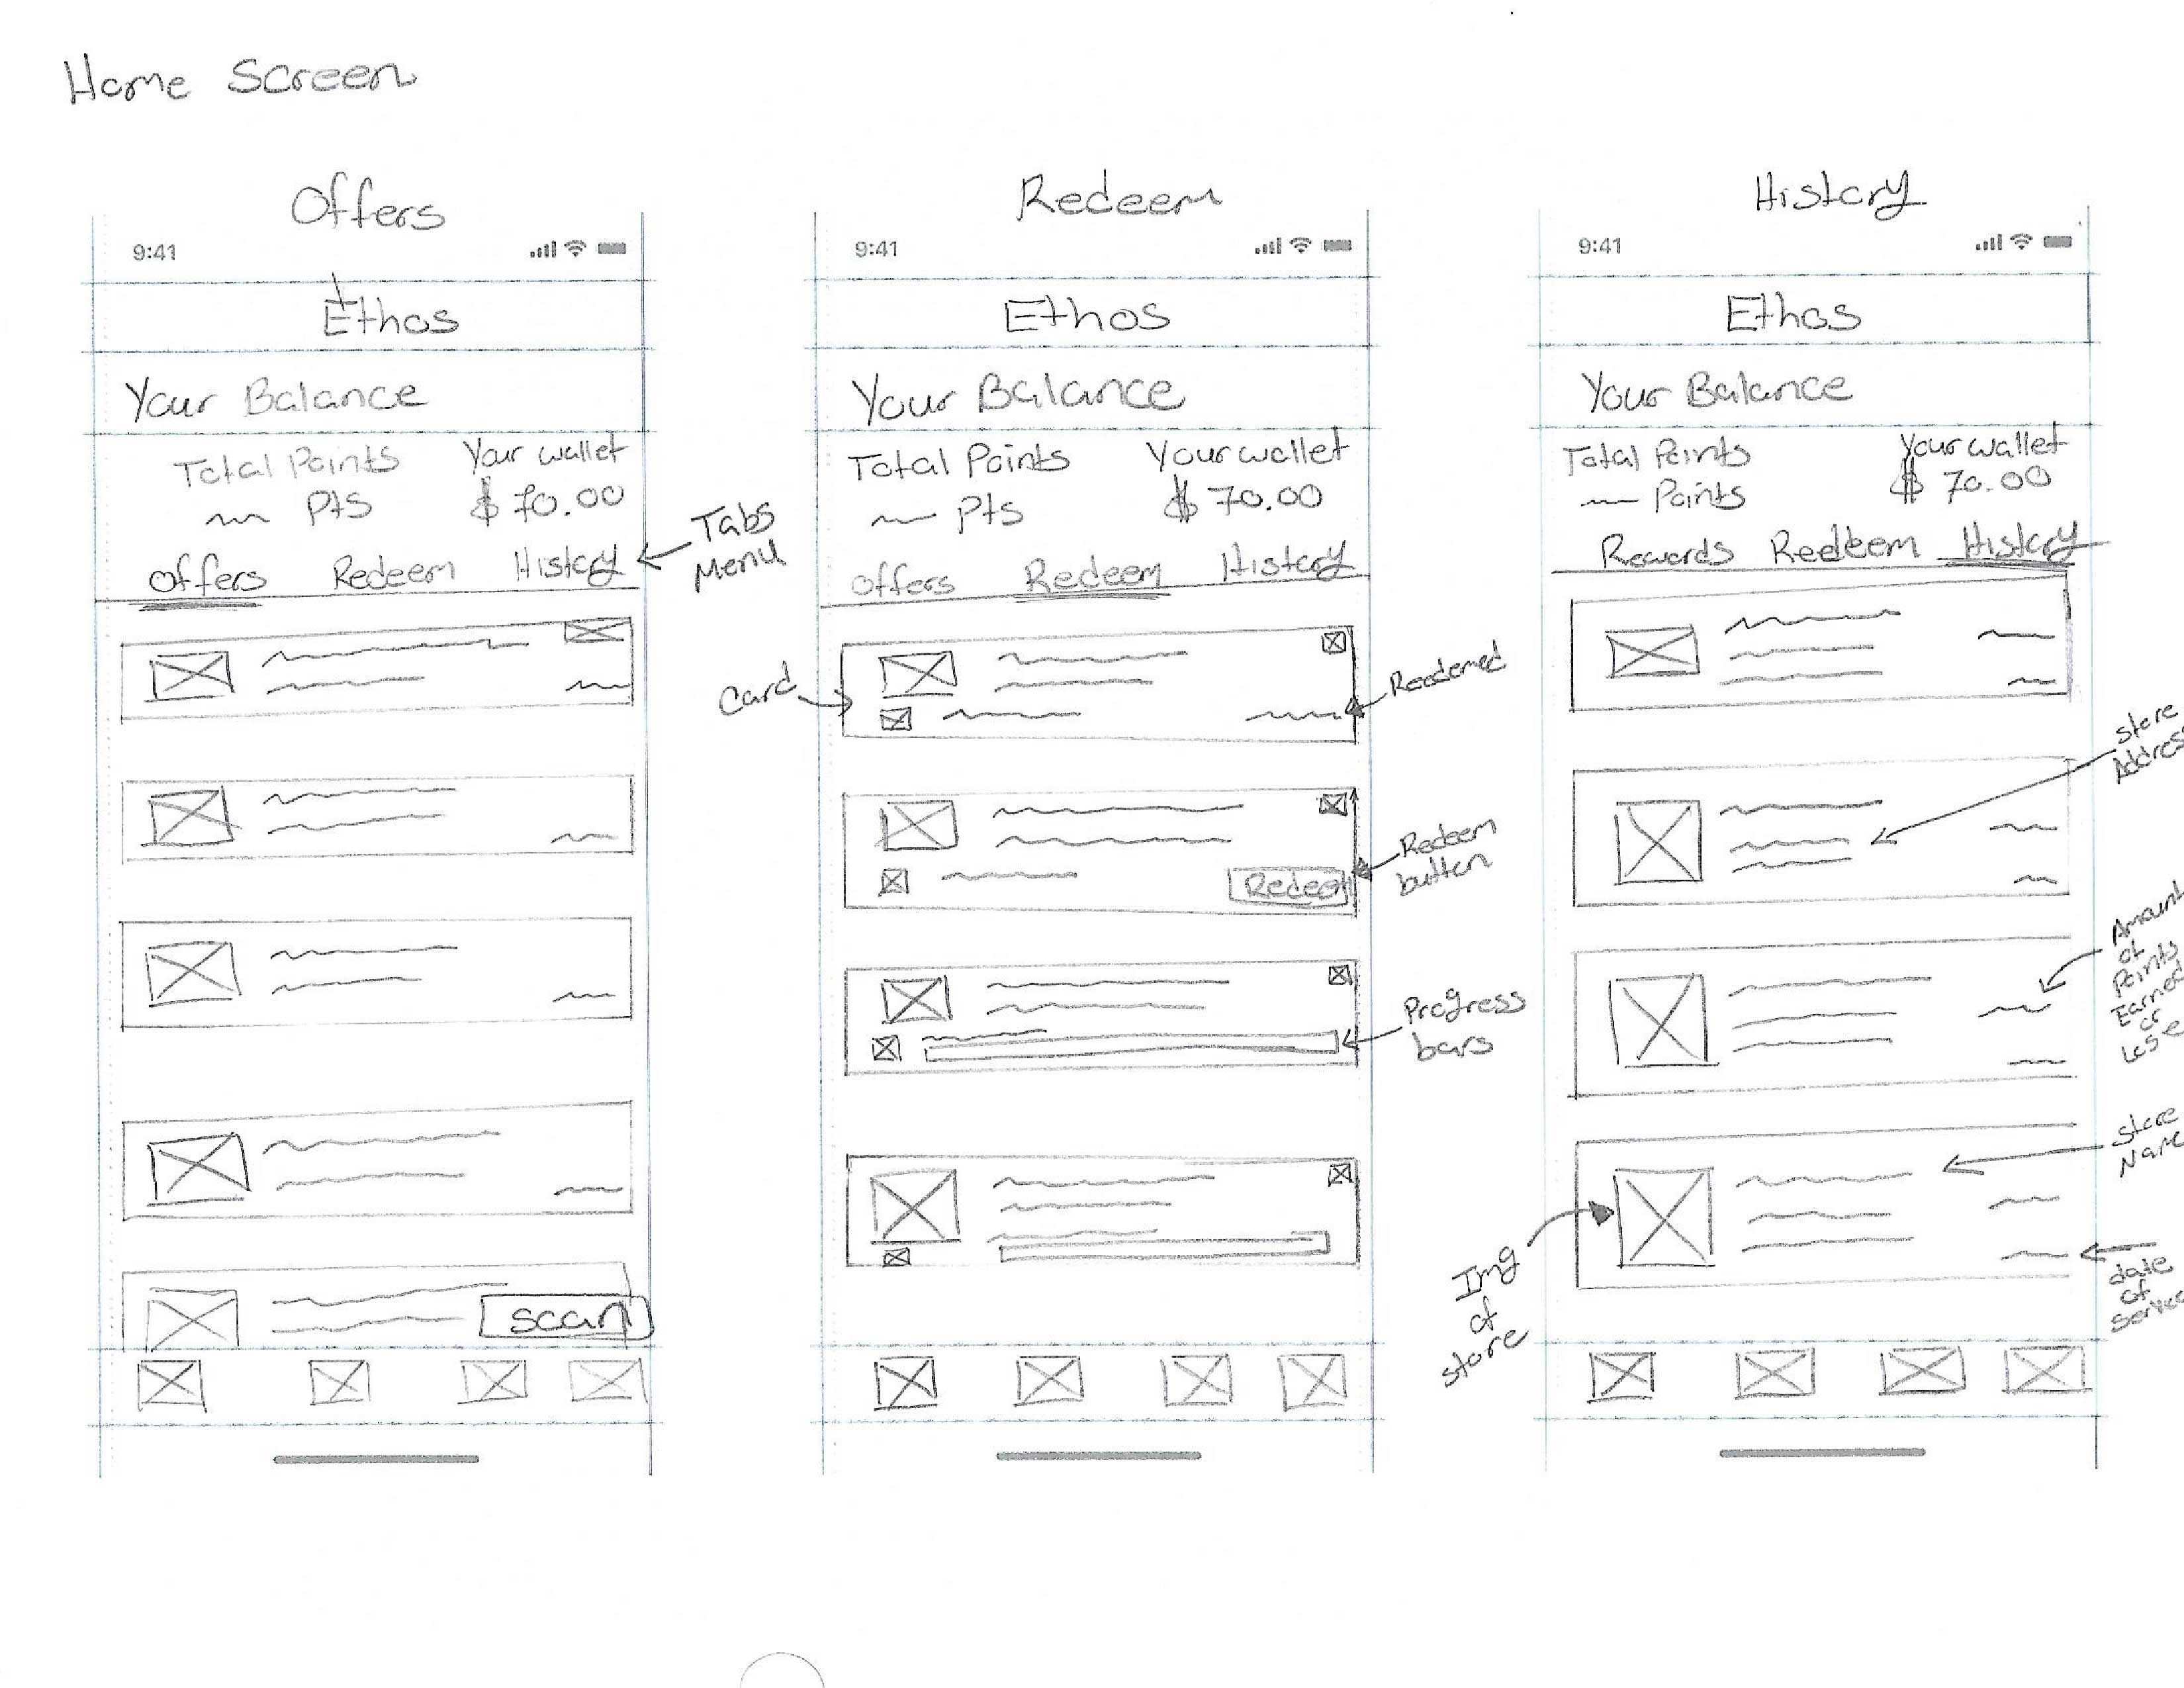 Home Screen
Offers
9:41
Ethos
Your Balance
Total Points Your wallet
Pts $70.00
Offers Redeem History
Tabs
Menu
scan
Redeem
9:41
Ethos
Your Balance
Total Points Your wallet
Pts $70.00
Offers Redeem History
Card
Redeemed
Redeem
Redeem
button
Progress
bars
History
9:41
Ethos
Your Balance
Total Points Your wallet
Points $70.00
Rewards Redeem History
Store
Address
Amount
of
Points
Earned
or
Lose
Store
Name
Img
of
store
date
of
Service